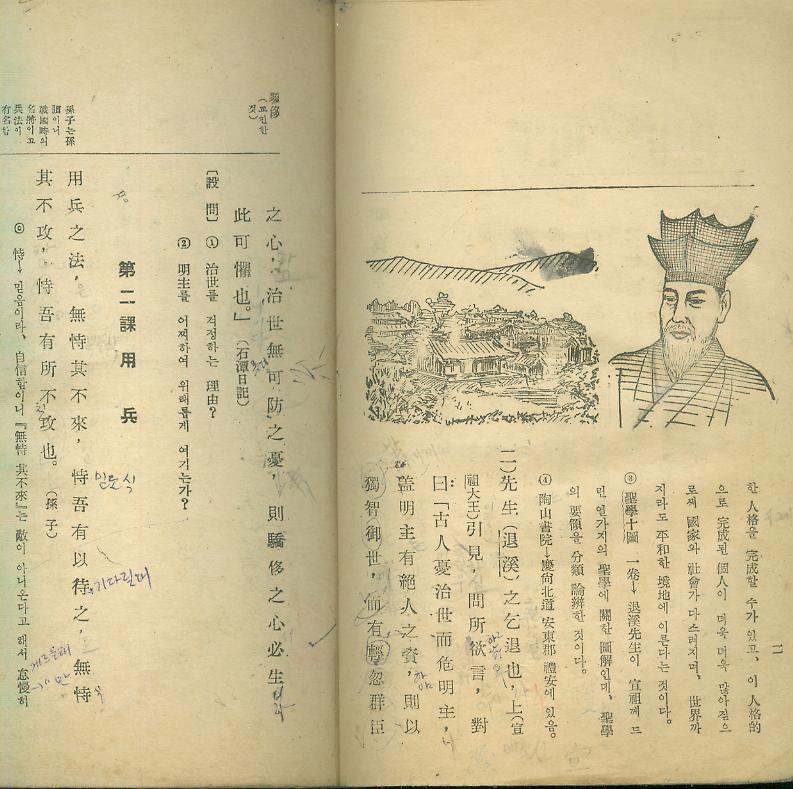 한 人格을 完成할 수가 있고, 이 人格的
으로 完成된 個人이 더욱 더욱 많아짐으
로써 國家와 社會가 다스려지며, 世界까
지라도 平和한 境地에 이른다는 것이다.
③ 聖學十圖 一卷→退溪先生이 宣祖께 드
린 열가지의 聖學에 關한 圖解인데, 聖學
의 要領을 分類 論辨한 것이다.
④ 陶山書院→慶尙北道 安東郡 禮安에 있음.
二) 先生(退溪)之乞退也, 上(宣
祖大王)引見, 問所欲言, 對
曰:「古人憂治世而危明主,
蓋明主有絕人之資, 則以
獨智御世, 而有輕忽群臣
二
驕侈(교만한 것)
之心; 治世無可防之憂, 則驕侈之心必生
此可懼也.」(石潭日記)
〔設問〕 ① 治世를 걱정하는 理由?
② 明主를 어찌하여 위태롭게 여기는가?
第二課 用兵
孫子는 孫
戰國時의
名將이고
兵法이
有名함
用兵之法, 無恃其不來, 恃吾有以待之, 無恃
믿을 식
기다릴대
其不攻, 恃吾有所不攻也. (孫子)
게으를태
⑥ 恃→믿음이라, 自信함이니 『無恃其不來』는 敵이 아니온다고 해서 怠慢히